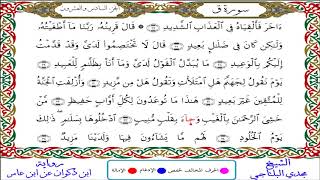 سورة ق الجزء السادس والعشرون
ءَاخَرَ فَأَلْقِيَاهُ فِى الْعَذَابِ الشَّدِيدِ ۞ قَالَ قَرِينُهُ رَبَّنَا مَا أَطْغَيْتُهُ
وَلَٰكِن كَانَ فِى ضَلَٰلٍ بَعِيدٍ قَالَ لَا تَخْتَصِمُوا لَدَىَّ وَقَدْ قَدَّمْتُ
إِلَيْكُم بِالْوَعِيدِ مَا يُبَدَّلُ الْقَوْلُ لَدَىَّ وَمَا أَنَا بِظَلَّٰمٍ لِّلْعَبِيدِ
يَوْمَ نَقُولُ لِجَهَنَّمَ هَلِ امْتَلَأْتِ وَتَقُولُ هَلْ مِن مَّزِيدٍ وَأُزْلِفَتِ الْجَنَّةُ
لِلْمُتَّقِينَ غَيْرَ بَعِيدٍ هَٰذَا مَا تُوعَدُونَ لِكُلِّ أَوَّابٍ حَفِيظٍ مَّنْ
خَشِىَ الرَّحْمَٰنَ بِالْغَيْبِ وَجَآءَ بِقَلْبٍ مُّنِيبٍ ادْخُلُوهَا بِسَلَٰمٍ ذَٰلِكَ
يَوْمُ الْخُلُودِ لَهُم مَّا يَشَآءُونَ فِيهَا وَلَدَيْنَا مَزِيدٌ
الحرف المخالف لحفص الإدغام الإمالة
الشيخ مجدي البلتاجي
رواية ابن ذكوان عن ابن عامر